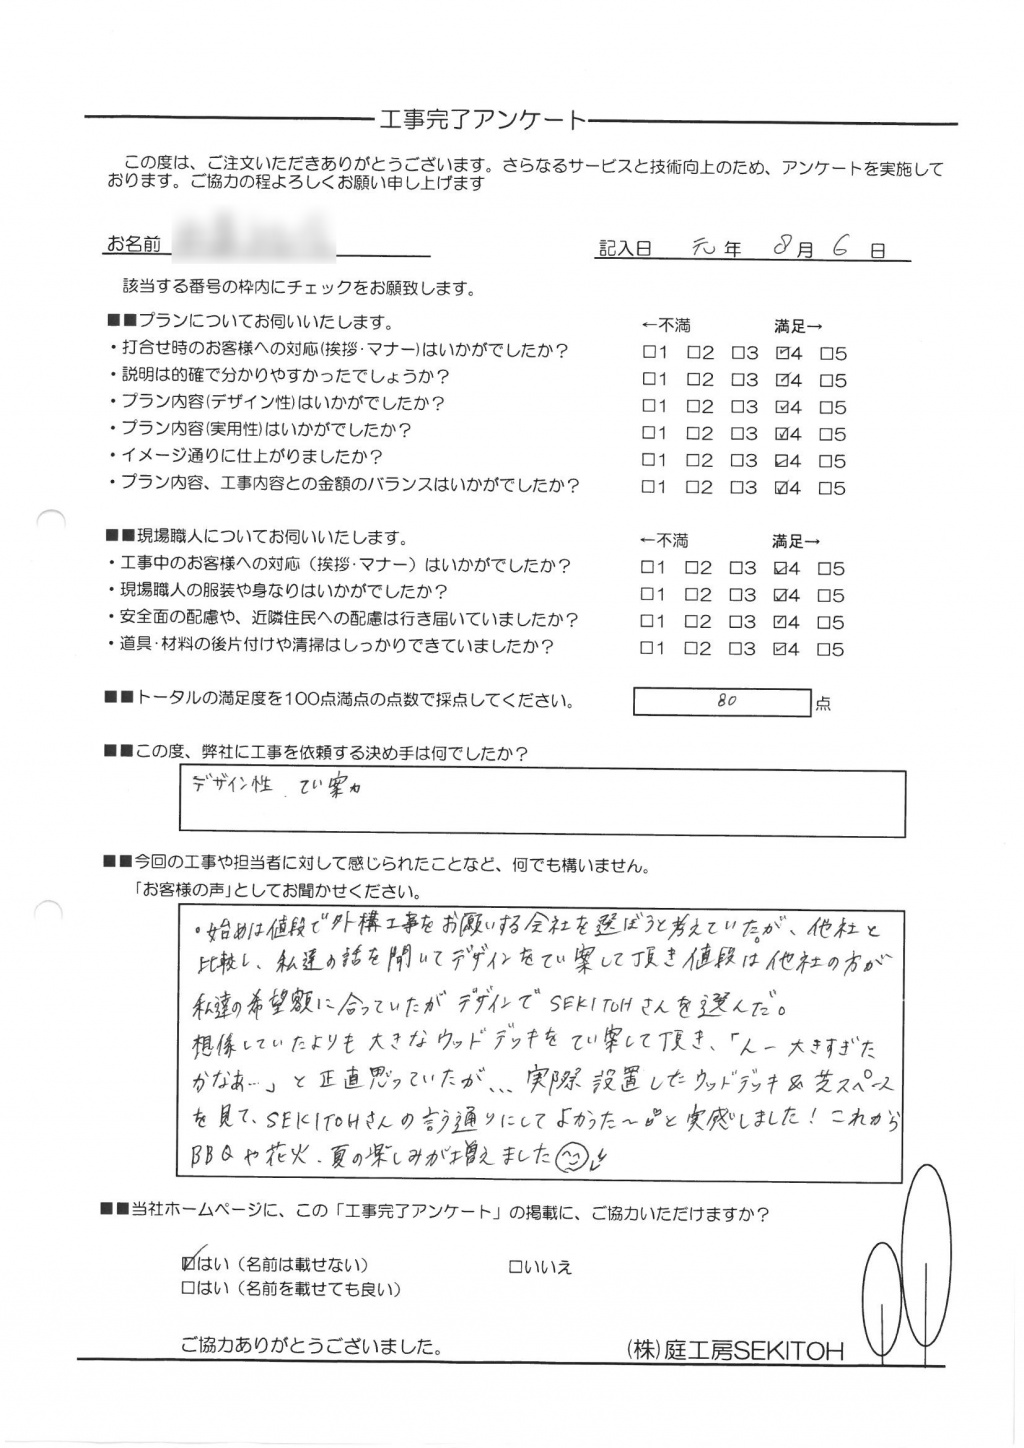 工事完了アンケート
この度は、ご注文いただきありがとうございます。さらなるサービスと技術向上のため、アンケートを実施して
おります。ご協力の程よろしくお願い申し上げます
お名前
記入日 元年 8月 6日
該当する番号の枠内にチェックをお願致します。
■■プランについてお伺いいたします。 ←不満 満足→
・打合せ時のお客様への対応(挨拶・マナー)はいかがでしたか? □1 □2 □3 ☑4 □5
・説明は的確で分かりやすかったでしょうか? □1 □2 □3 ☑4 □5
・プラン内容(デザイン性)はいかがでしたか? □1 □2 □3 ☑4 □5
・プラン内容(実用性)はいかがでしたか? □1 □2 □3 ☑4 □5
・イメージ通りに仕上がりましたか? □1 □2 □3 ☑4 □5
・プラン内容、工事内容との金額のバランスはいかがでしたか? □1 □2 □3 ☑4 □5
■■現場職人についてお伺いいたします。 ←不満 満足→
・工事中のお客様への対応（挨拶・マナー）はいかがでしたか? □1 □2 □3 ☑4 □5
・現場職人の服装や身なりはいかがでしたか? □1 □2 □3 ☑4 □5
・安全面の配慮や、近隣住民への配慮は行き届いていましたか? □1 □2 □3 ☑4 □5
・道具・材料の後片付けや清掃はしっかりできていましたか? □1 □2 □3 ☑4 □5
■■トータルの満足度を100点満点の点数で採点してください。 80 点
■■この度、弊社に工事を依頼する決め手は何でしたか?
デザイン性、てい案力
■■今回の工事や担当者に対して感じられたことなど、何でも構いません。
「お客様の声」としてお聞かせください。
・始めは値段で外構工事をお願いする会社を選ぼうと考えていたが、他社と
比較し、私達の話を聞いてデザインをてい案して頂き値段は他社の方が
私達の希望額に合っていたがデザインでSEKITOHさんを選んだ。
想像していたよりも大きなウッドデッキをてい案して頂き、「んー大きすぎた
かなあ…」と正直思っていたが、、、実際設置したウッドデッキ&芝スペース
を見て、SEKITOHさんの言う通りにしてよかった〜!!と実感しました！これから
BBQや花火、夏の楽しみが増えました
■■当社ホームページに、この「工事完了アンケート」の掲載に、ご協力いただけますか?
☑はい（名前は載せない） □いいえ
□はい（名前を載せても良い）
ご協力ありがとうございました。
(株)庭工房SEKITOH